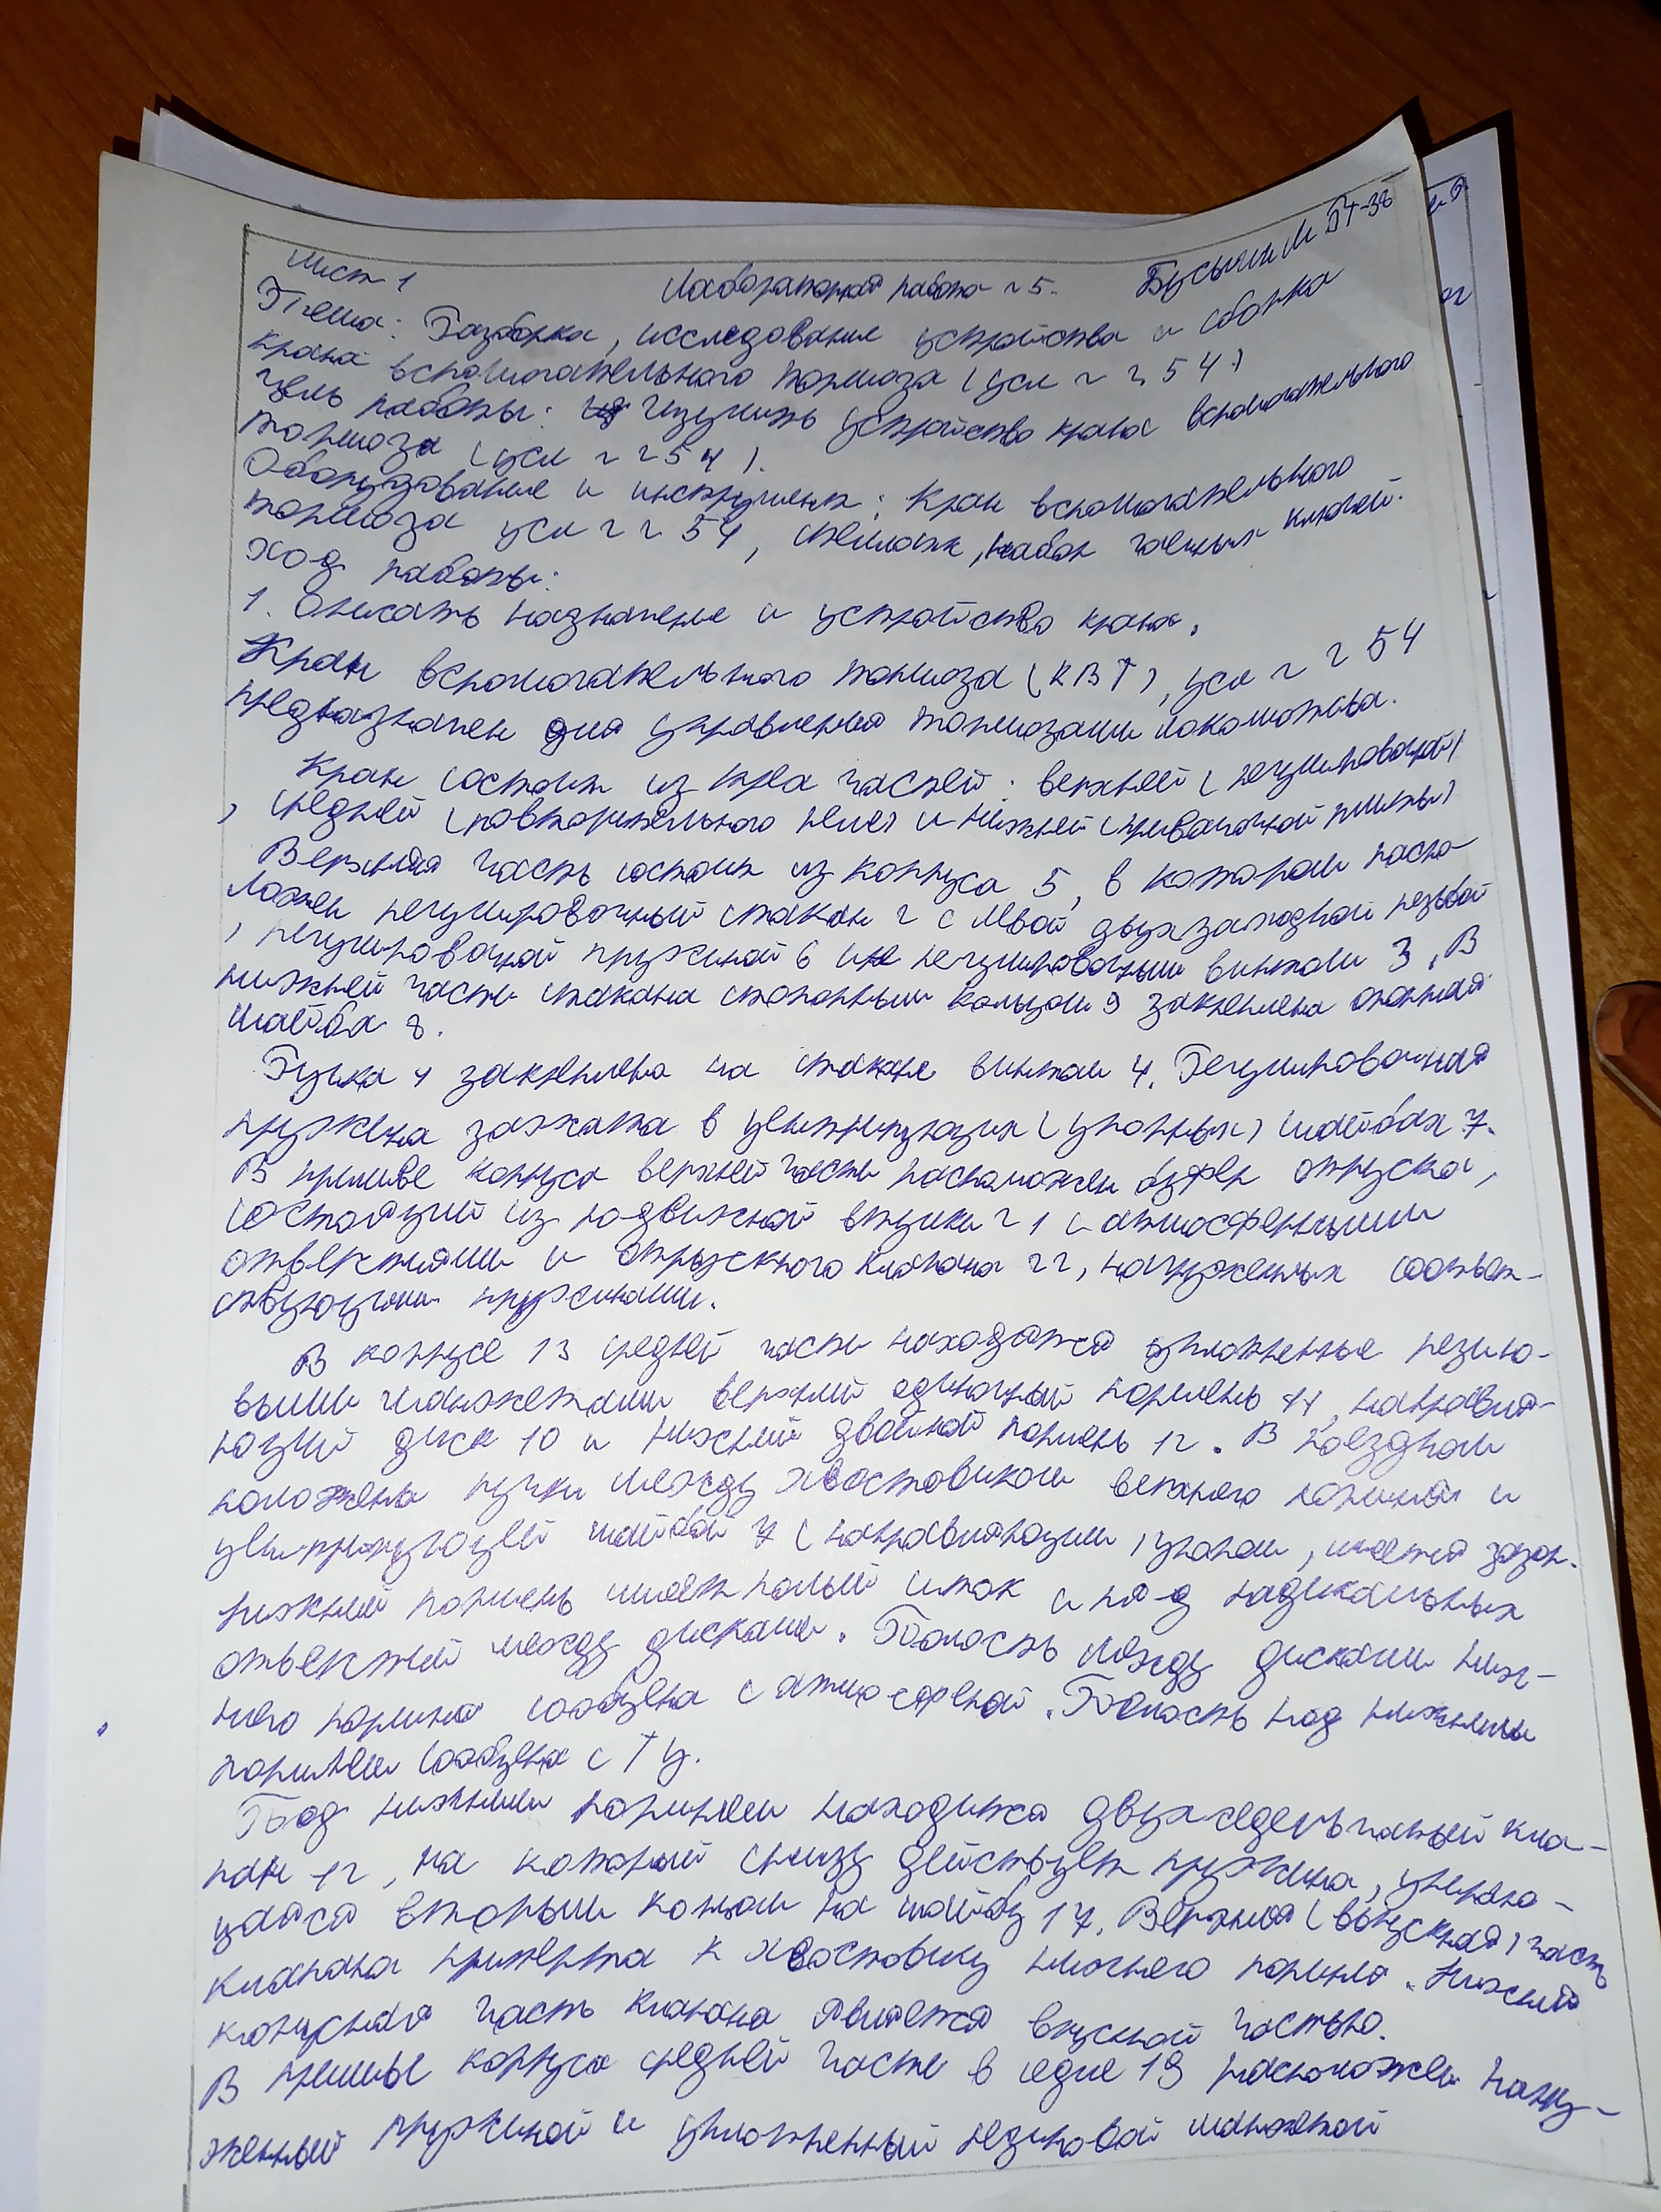 Лист 1 Лабораторная работа №5. Бусыгин М ДТ-38
Тема: Разборка, исследование устройства и сборка
крана вспомогательного тормоза (усл № 254)
Цель работы: Изучить устройство крана вспомогательного
тормоза (усл № 254).
Оборудование и инструмент: Кран вспомогательного
тормоза усл № 254, стеллаж, набор гаечных ключей.
Ход работы:
1. Описать назначение и устройство крана.
Кран вспомогательного тормоза (КВТ), усл № 254
предназначен для управления тормозами локомотива.
Кран состоит из трёх частей: верхней (регулировочной)
, средней (повторительного реле) и нижней (привалочной плиты)
Верхняя часть состоит из корпуса 5, в котором распо-
ложен регулировочный стакан 2 с левой двухзаходной резьбой
, регулировочной пружиной 6 и регулировочным винтом 3. В
нижней части стакана стопорным кольцом 9 закреплена опорная
шайба 8.
Ручка 1 закреплена на стакане винтом 4. Регулировочная
пружина зажата в центрирующих (упорных) шайбах 7.
В приливе корпуса верхней части расположен буфер отпуска,
состоящий из подвижной втулки 21 с атмосферными
отверстиями и отпускного клапана 22, нагруженных соответ-
ствующими пружинами.
В корпусе 13 средней части находятся уплотненные резино-
выми манжетами верхний одиночный поршень 11, направля-
ющий диск 10 и нижний двойной поршень 12. В поездном
положении ручки между хвостовиком верхнего поршня и
центрирующей шайбой 7 (направляющим) упором, имется зазор.
Нижний поршень имеет полый шток и ряд радикальных
отверстий между дисками. Полость между дисками ниж-
него поршня сообщена с атмосферной. Полость под нижним
поршнем сообщена с ТЦ.
Под нижним поршнем находится двухседельчатый кла-
пан 12, на который снизу действует пружина, упираю-
щаяся вторым концом на шайбу 17. Верхняя (выпускная) часть
клапана притерта к хвостовику нижнего поршня. Нижний
конусная часть клапана является впускной частью.
В приливе корпуса средней части в седле 19 расположен нагру-
женный пружиной и уплотненный резиновой манжетой